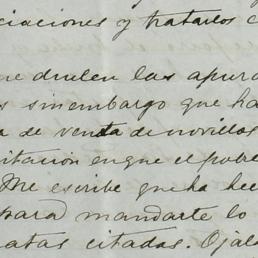 ciaciones y tratarlos c
ue duelen las apura
s sin embargo que ha
a de venta de novillos
citación en que el pobre
Me escribe que ha hec
para mandarte lo
atas citadas. Ojalá